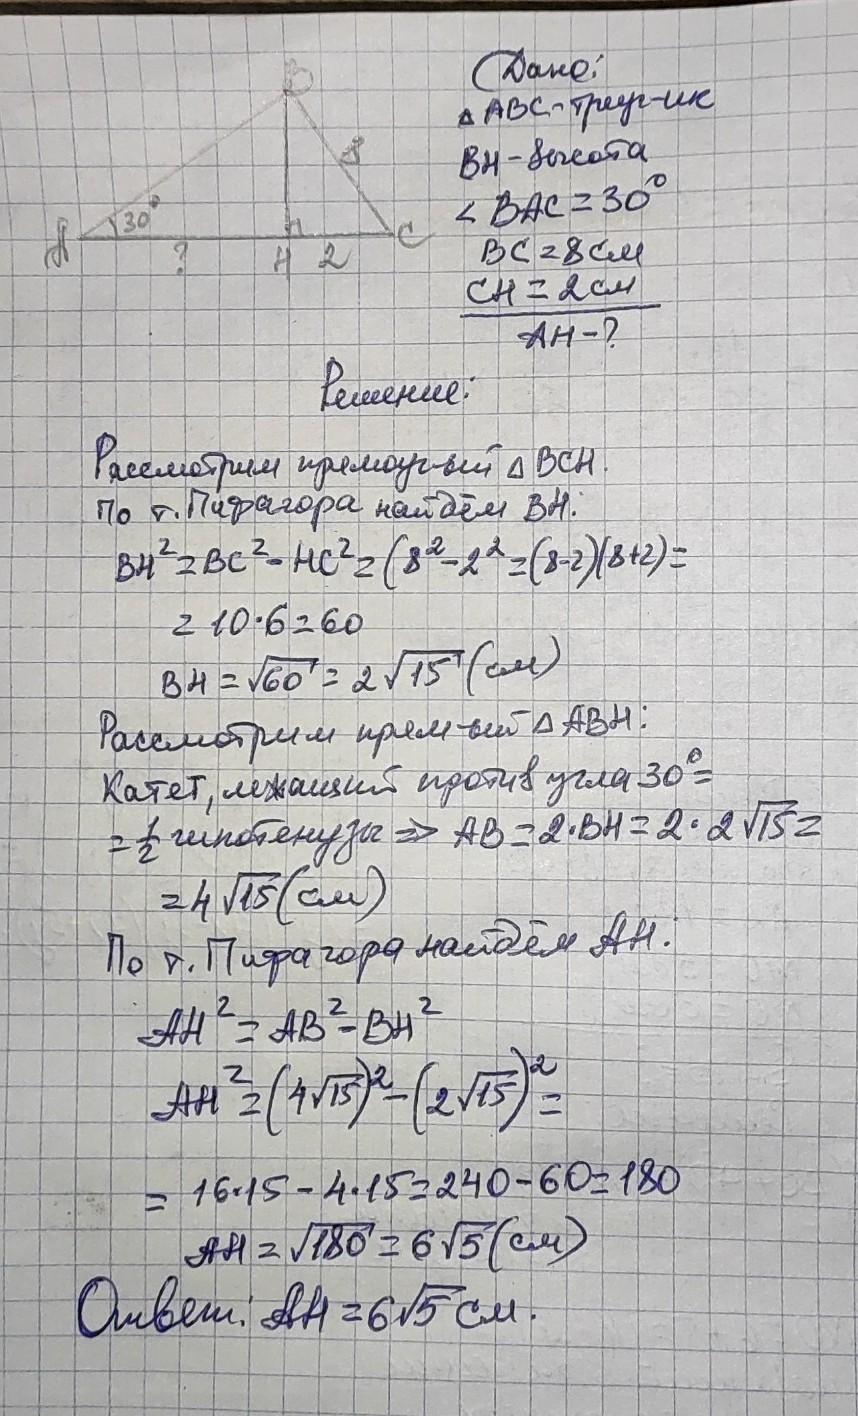 B
8
30°
A
?
H
2
C
Дано:
△ABC-треуг-ик
BH-высота
∠BAC=30°
BC=8см
CH=2см
AH-?
Решение:
Рассмотрим прямоуг-ый △BCH.
По т. Пифагора найдём BH:
BH²=BC²-HC²=(8²-2²=(8-2)(8+2)=
=10·6=60
BH=√60=2√15(см)
Рассмотрим прям-ый △ABH:
Катет, лежащий против угла 30°=
=1/2 гипотенузы => AB=2·BH=2·2√15=
=4√15(см)
По т. Пифагора найдём AH:
AH²=AB²-BH²
AH²=(4√15)²-(2√15)²=
=16·15-4·15=240-60=180
AH=√180=6√5(см)
Ответ: AH=6√5см.